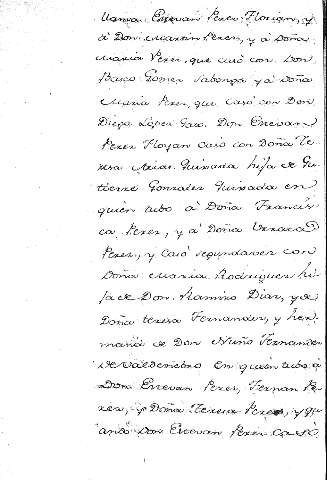 llama Estevan Perez Florian, y
á Don Martin Perez, y á Doña
Maria Perez, que casó con Don
Basco Gomez y á Doña
Maria Perez, que Casó con Don
Diego Lopez Don Estevan
Perez Floyan Casó con Doña Te
resa Arias Quixada hija de Gu
tierre Gonzalez Quixada en
quien tubo á Doña Francis
ca Perez, y á Doña Urraca
Perez, y Casó segundavez con
Doña Maria Rodriguez hi
ja de Don Ramiro Diaz, y de
Doña teresa Fernandez, y her
mana de Don Nuño Fernandez
de Valdenebro en quien tubo á
Don Estevan Perez, Fernan Pe
rez, y Doña Teresa Perez, y qu
ando Don Estevan Perez casó